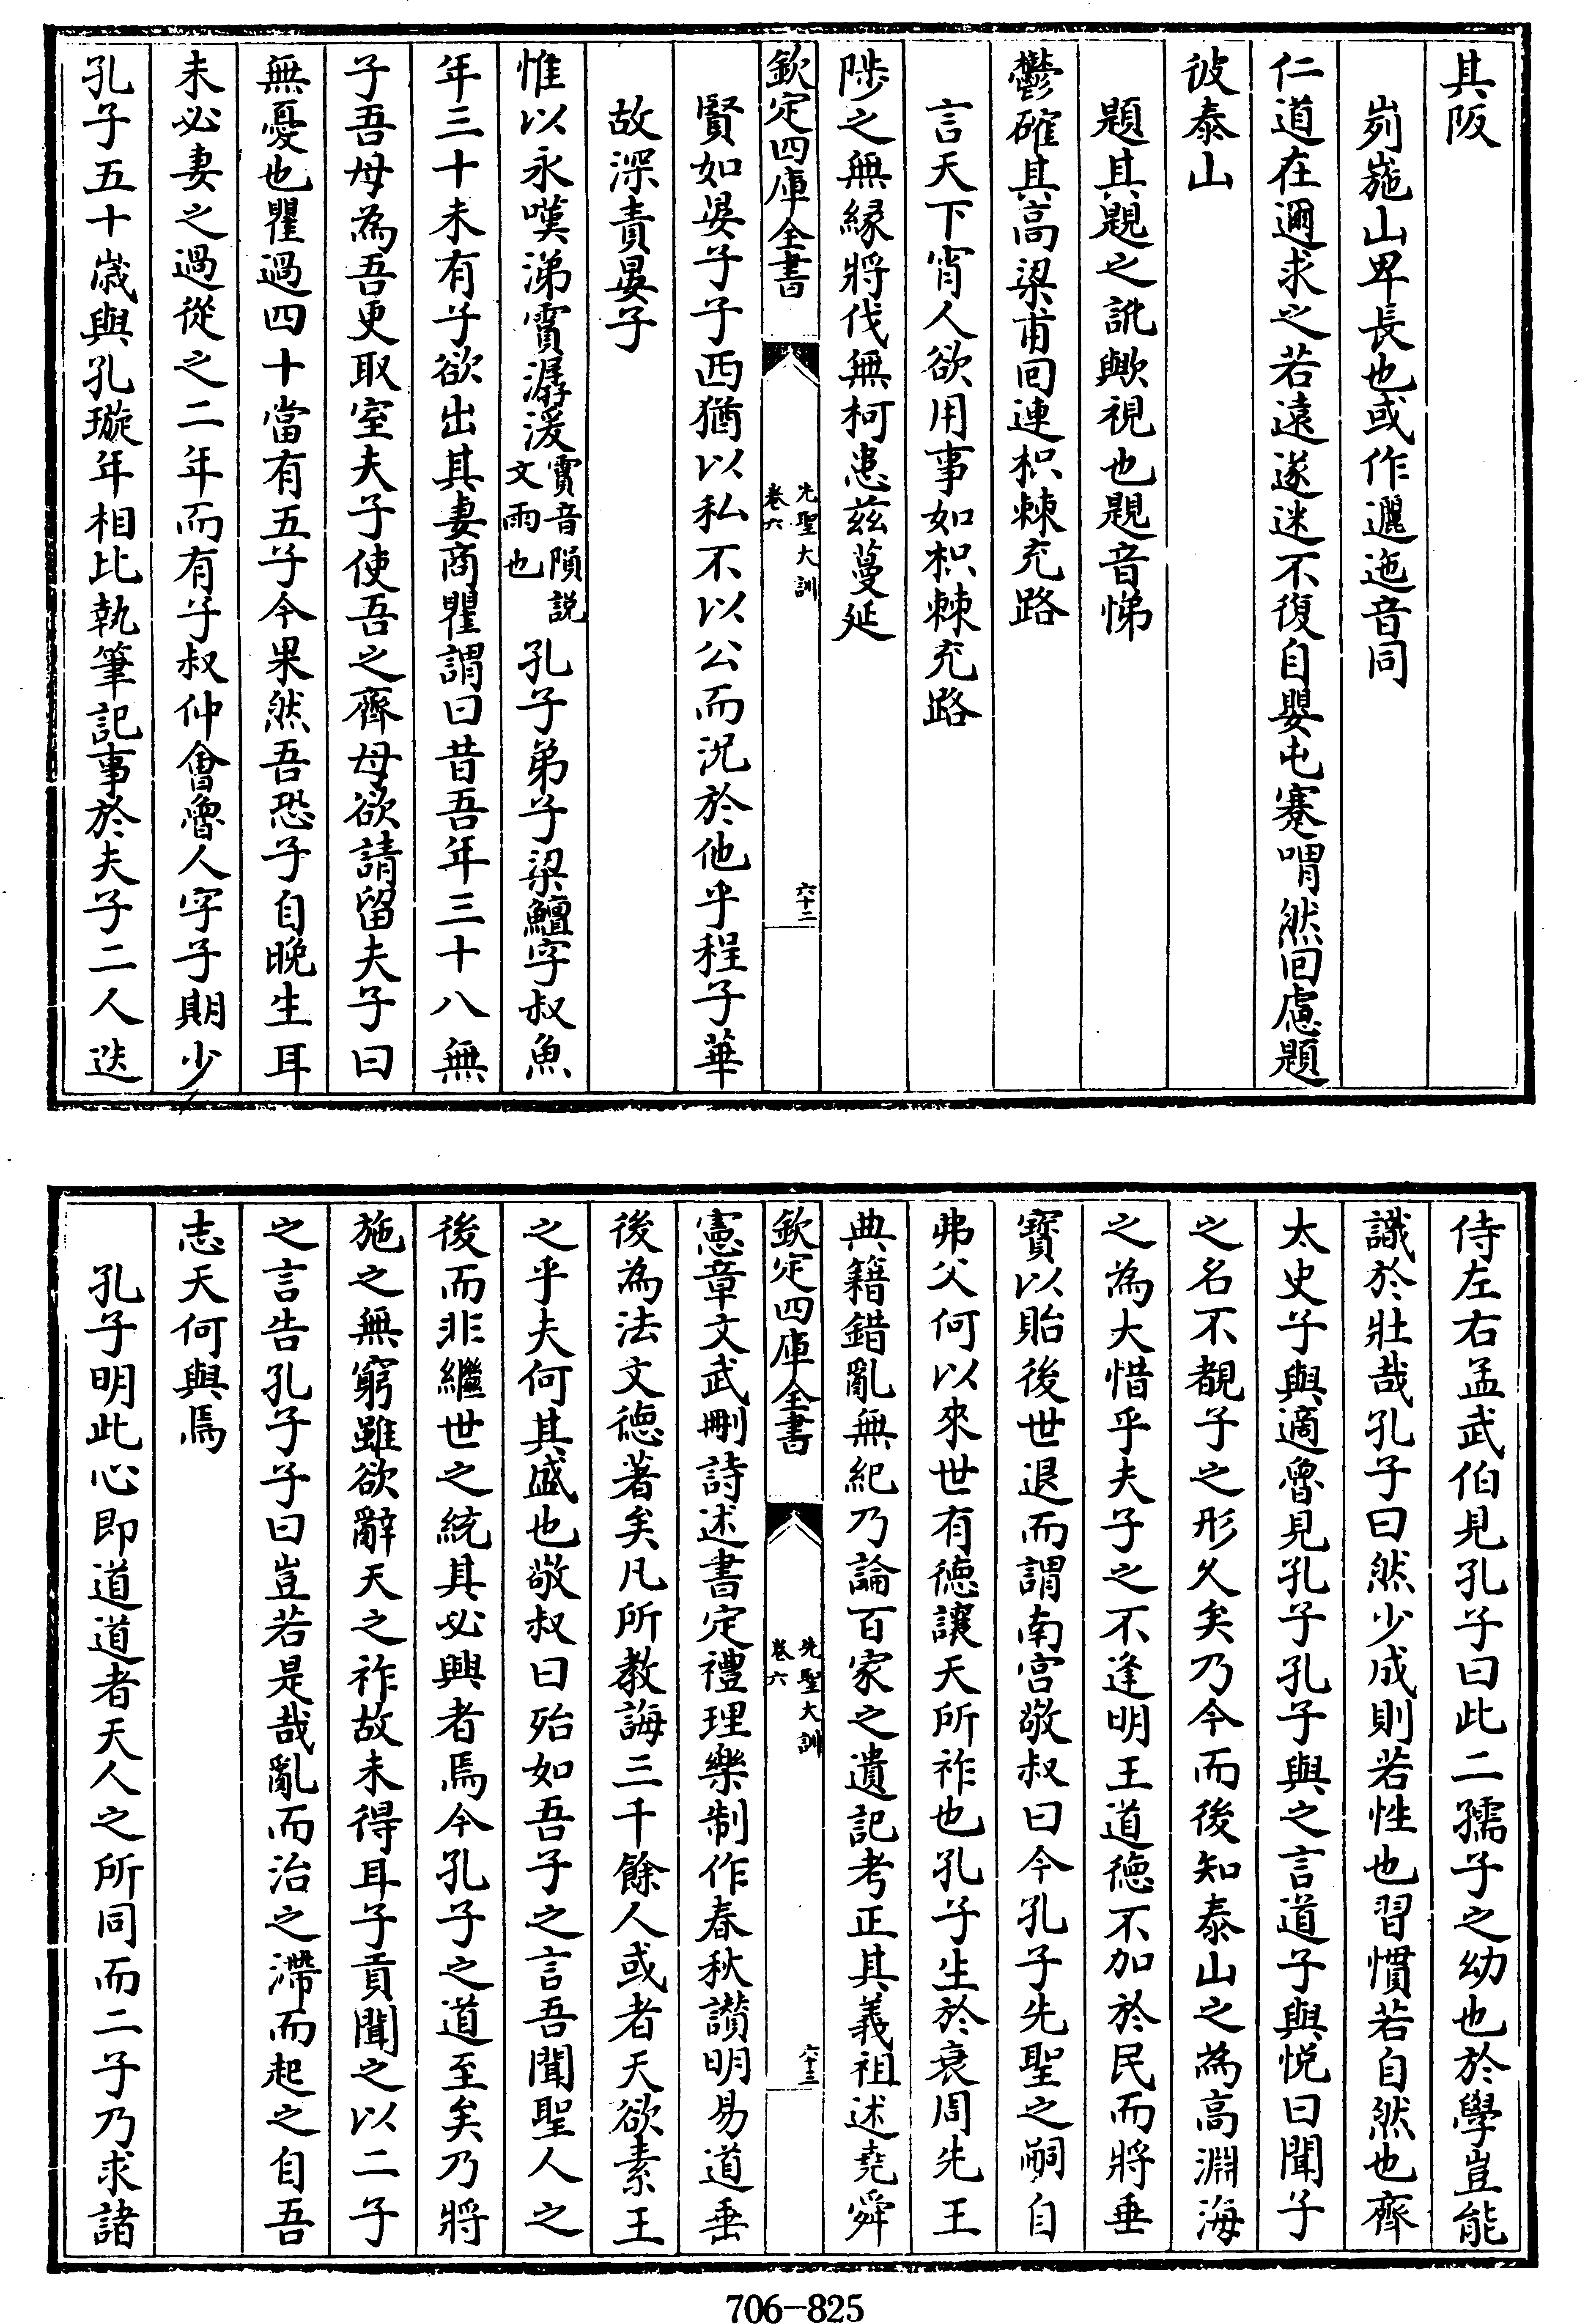 其阪
峛崺山卑長也或作邐迤音同
仁道在邇求之若遠遂迷不復自嬰屯蹇喟然回慮題
彼泰山
題其題之訛歟視也題音悌
鬱確其高梁甫回連枳棘充路
言天下宵人欲用事如枳棘充路
陟之無緣將伐無柯患兹蔓延
欽定四庫全書
先聖大訓
卷六
六十二
賢如晏子子西猶以私不以公而況於他乎程子華
故深責晏子
惟以永嘆涕霣潺湲霣音隕説文雨也孔子弟子梁鱣字叔魚
年三十未有子欲出其妻商瞿謂曰昔吾年三十八無
子吾母為吾更取室夫子使吾之齊母欲請留夫子曰
無憂也瞿過四十當有五子今果然吾恐子自晚生耳
未必妻之過從之二年而有子叔仲會魯人字子期少
孔子五十歲與孔璇年相比執筆記事於夫子二人迭
侍左右孟武伯見孔子曰此二孺子之幼也於學豈能
識於壯哉孔子曰然少成則若性也習慣若自然也齊
太史子與適魯見孔子孔子與之言道子與悦曰聞子
之名不覩子之形久矣乃今而後知泰山之為高淵海
之為大惜乎夫子之不逢明王道德不加於民而將垂
寳以貽後世退而謂南宫敬叔曰今孔子先聖之嗣自
弗父何以來世有德讓天所祚也孔子生於衰周先王
典籍錯亂無紀乃論百家之遺記考正其義祖述堯舜
欽定四庫全書
先聖大訓
卷六
六十三
憲章文武刪詩述書定禮理樂制作春秋讃明易道垂
後為法文德著矣凡所教誨三千餘人或者天欲素王
之乎夫何其盛也敬叔曰殆如吾子之言吾聞聖人之
後而非繼世之統其必興者焉今孔子之道至矣乃將
施之無窮雖欲辭天之祚故未得耳子貢聞之以二子
之言告孔子子曰豈若是哉亂而治之滯而起之自吾
志天何與焉
孔子明此心即道道者天人之所同而二子乃求諸
706-825